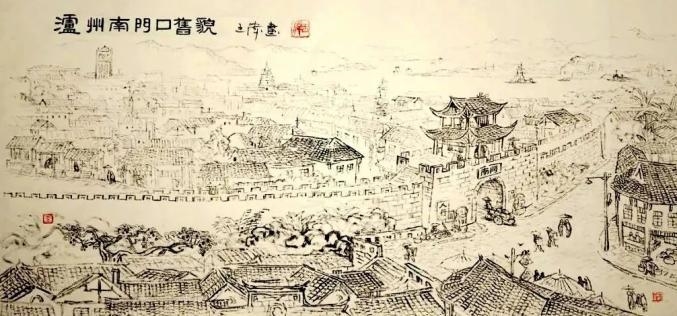 瀘州南門口舊貌
畫
南門